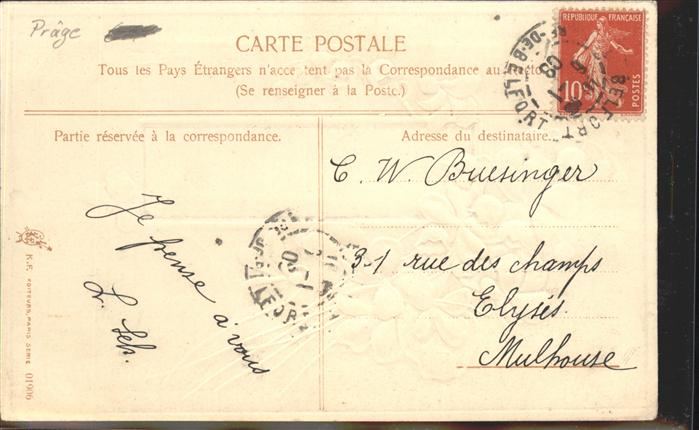 Präge
CARTE POSTALE
Tous les Pays Étrangers n'acceptent pas la Correspondance au Recto
(Se renseigner à la Poste.)
REPUBLIQUE FRANÇAISE
10c
POSTES
BELFORT
-DE-BELFORT
Partie réservée à la correspondance.
Adresse du destinataire.
Je pense à vous
L. Seh.
C. W. Buesinger
31 rue des champs
Elysés
Mulhouse
K.F. EDITEURS, PARIS SERIE 01906